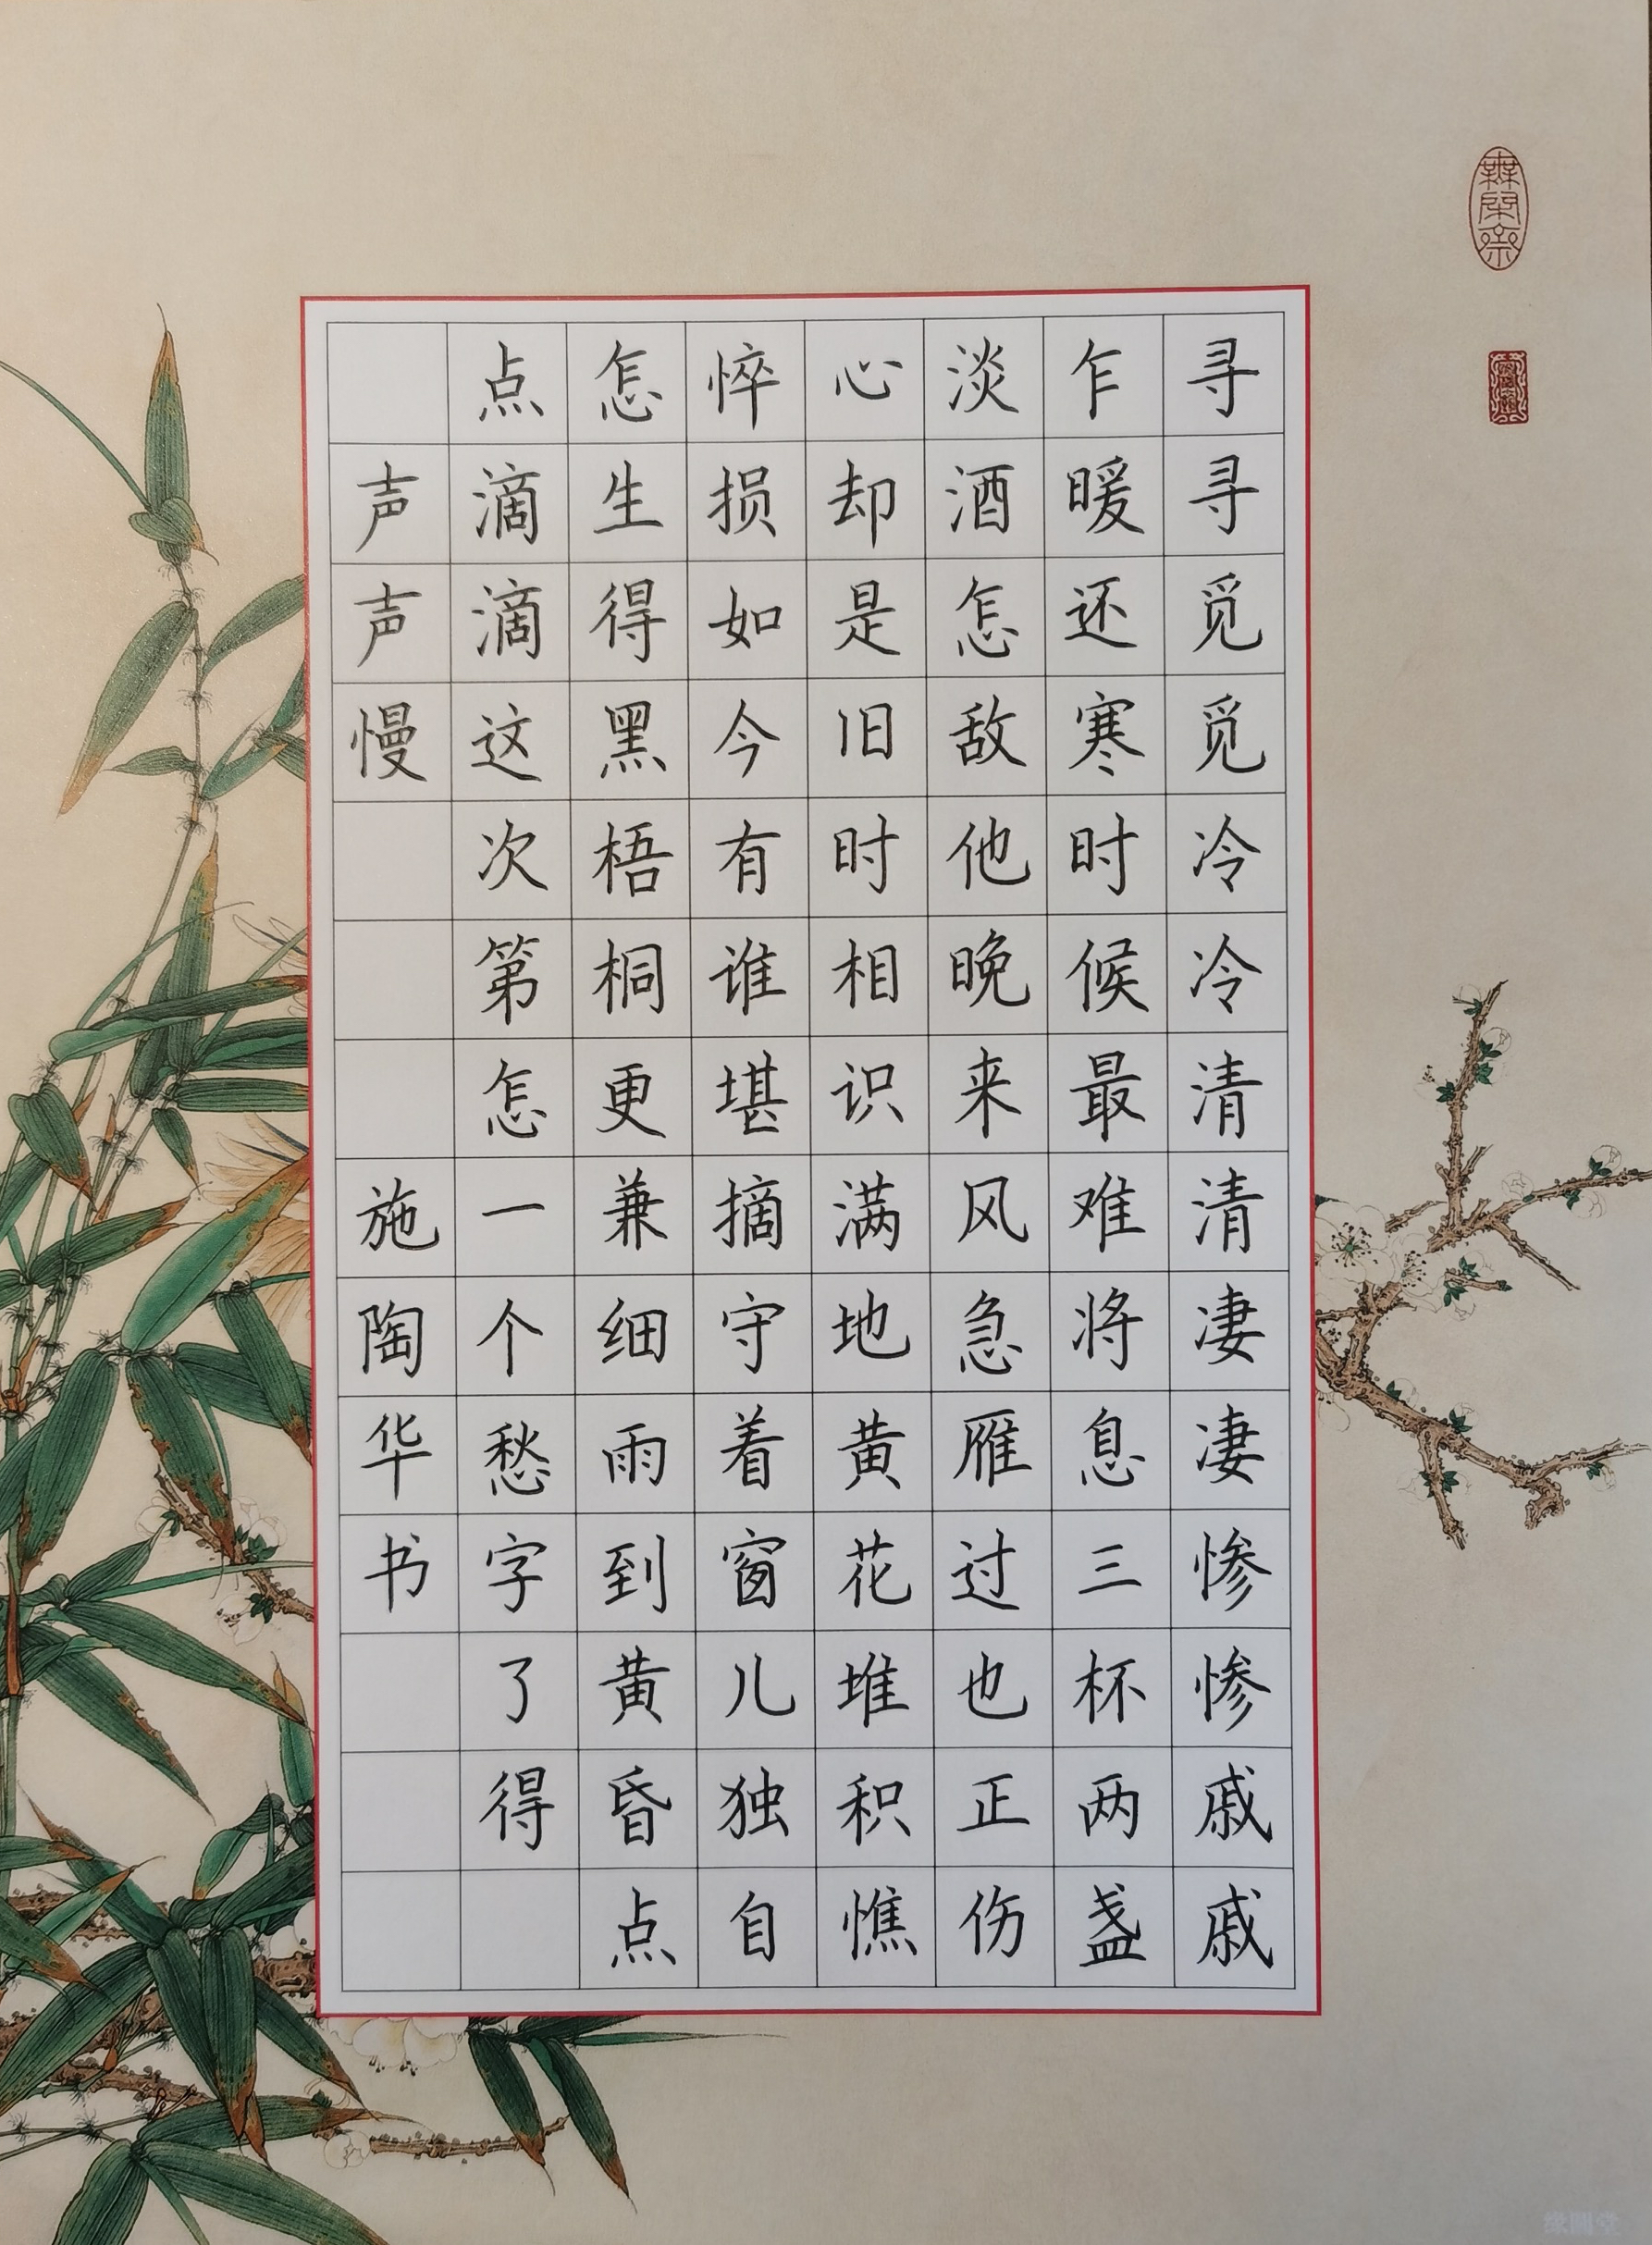 寻寻觅觅冷冷清清凄凄惨惨戚戚
乍暖还寒时候最难将息三杯两盏
淡酒怎敌他晚来风急雁过也正伤
心却是旧时相识满地黄花堆积憔
悴损如今有谁堪摘守着窗儿独自
怎生得黑梧桐更兼细雨到黄昏点
点滴滴这次第怎一个愁字了得
声声慢
施陶华书